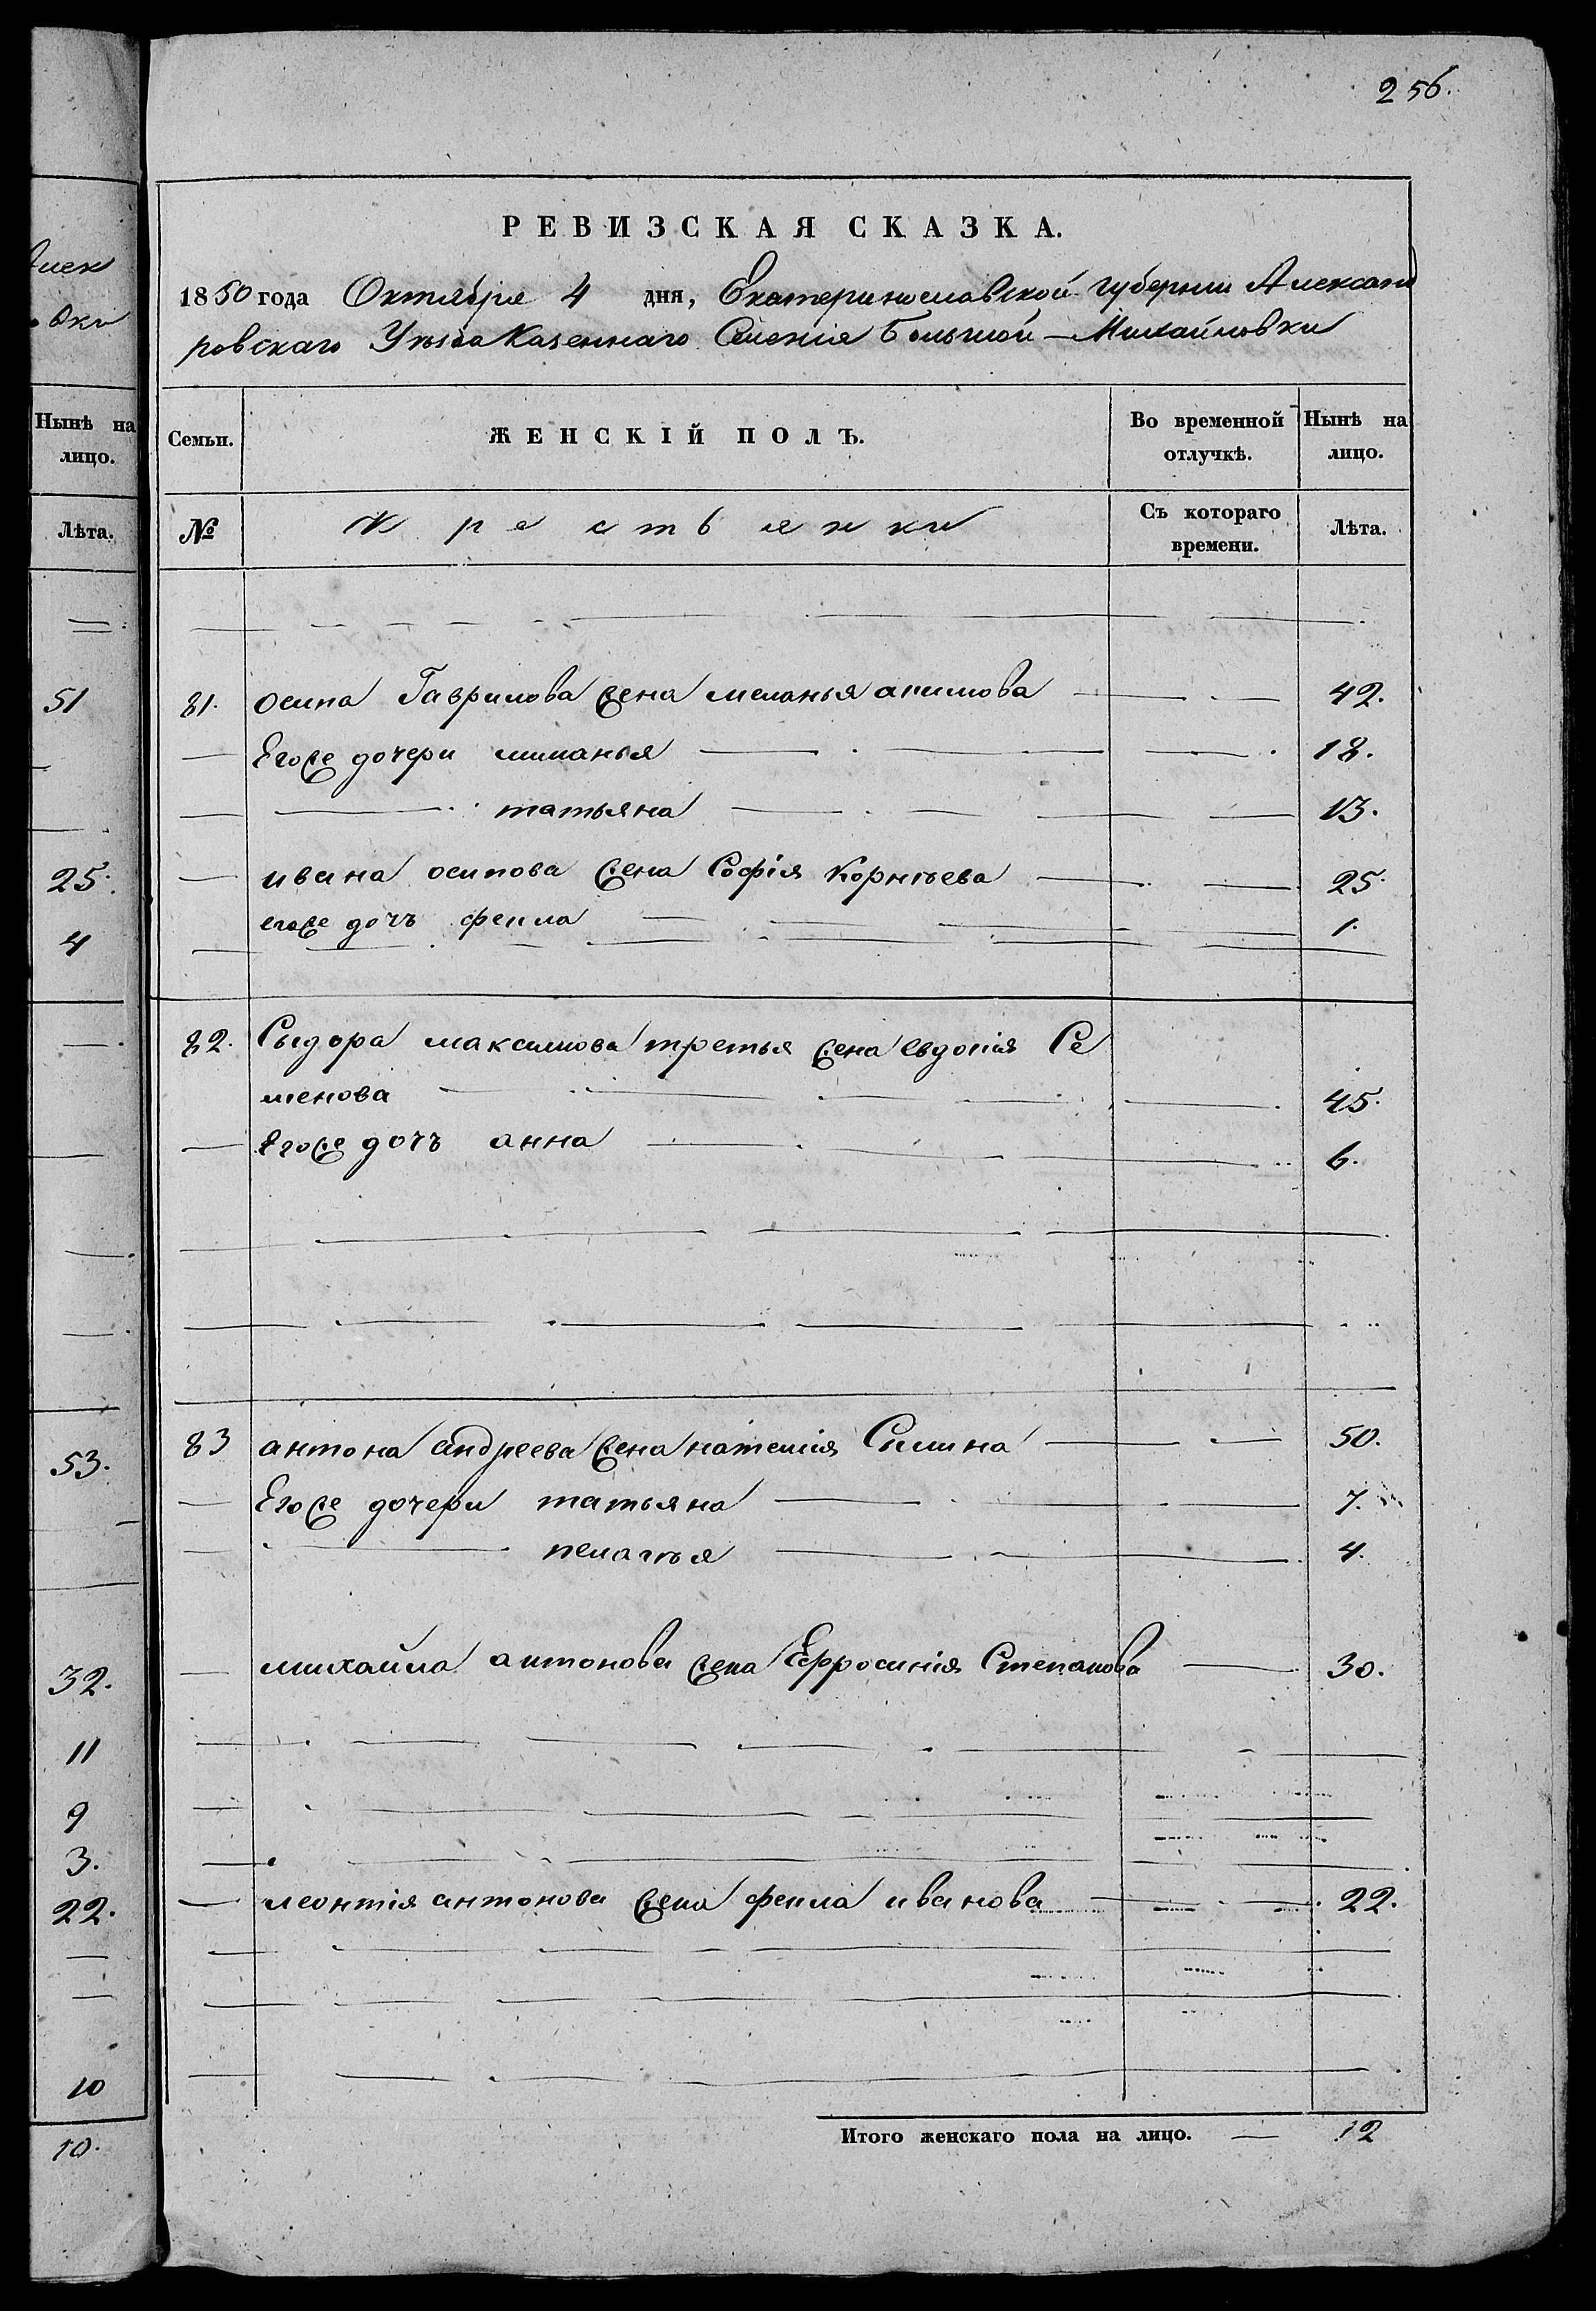 256.
РЕВИЗСКАЯ СКАЗКА.
1850 года Октября 4 дня, Екатеринославской губернии Александ
ровскаго Уѣзда Казеннаго Селенія Большой-Михайловки
Семьи. ЖЕНСКІЙ ПОЛЪ. Во временной отлучкѣ. Нынѣ на лицо.
№ Крестьянки Съ котораго времени. Лѣта.
81. осипа Гаврилова жена меланья акимова 42.
Егоже дочери миланья 18.
татьяна 13.
ивана осипова жена Софія Корнѣева 25.
егоже дочъ фекла 1.
82. Сыдора максимова третья жена евдокія Се
менова 45.
Егоже дочъ анна 6.
83 антона андреева жена наталія Силина 50.
Егоже дочери татьяна 7.
пелагѣя 4.
михайла антонова жена Ефросинія Степанова 30.
леонтія антонова жена фекла иванова 22.
Итого женскаго пола на лицо. 12
Нынѣ на
лицо.
Лѣта.
51
25.
4
53.
32.
11
9
3.
22.
10
10.